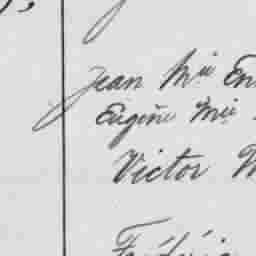 Jean Mie En
Eugène Mie
Victor M
Frédéric